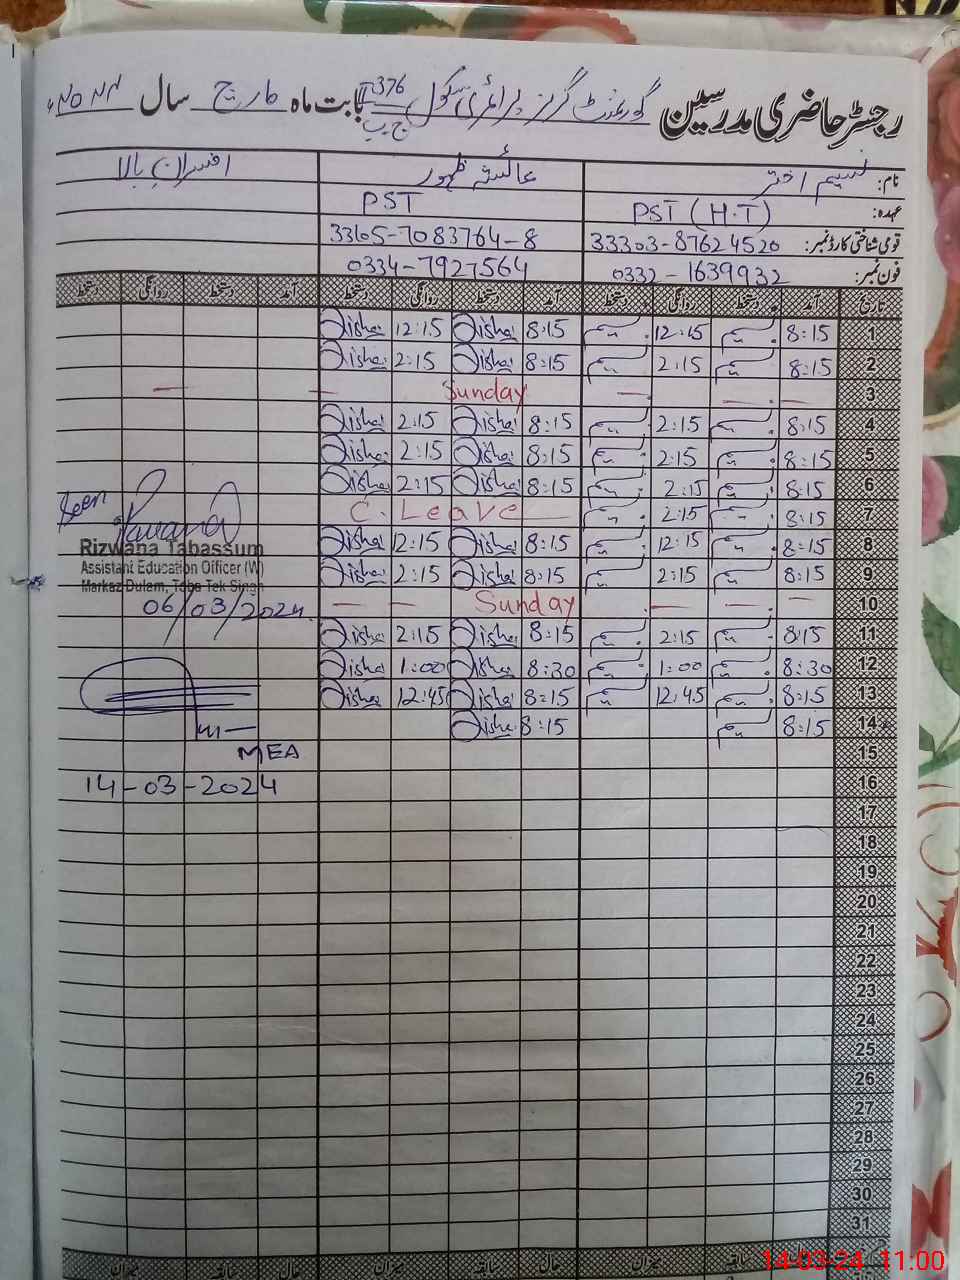 رجسٹر حاضری مدرسین گورنمنٹ گرلز پرائمری سکول 376 ج ب بابت ماہ مارچ سال ۲۰۲۴ء
نام: نسیم اختر عائشہ ظہور افسران بالا
عہدہ: PST (H.T) PST
قومی شناختی کارڈ نمبر: 33303-87624520 33305-7083764-8
فون نمبر: 0332-1639932 0334-7927564
تاریخ آمد دستخط روانگی دستخط آمد دستخط روانگی دستخط آمد دستخط روانگی دستخط
1 8:15 نسیم 12:15 نسیم 8:15 Aisha 12:15 Aisha
2 8:15 نسیم 2:15 نسیم 8:15 Aisha 2:15 Aisha
3 — — — Sunday — —
4 8:15 نسیم 2:15 نسیم 8:15 Aisha 2:15 Aisha
5 8:15 نسیم 2:15 نسیم 8:15 Aisha 2:15 Aisha
6 8:15 نسیم 2:15 نسیم 8:15 Aisha 2:15 Aisha
7 8:15 نسیم 2:15 نسیم C. Leave —
8 8:15 نسیم 12:15 نسیم 8:15 Aisha 12:15 Aisha
9 8:15 نسیم 2:15 نسیم 8:15 Aisha 2:15 Aisha
10 — — — Sunday — —
11 8:15 نسیم 2:15 نسیم 8:15 Aisha 2:15 Aisha
12 8:30 نسیم 1:00 نسیم 8:30 Aisha 1:00 Aisha
13 8:15 نسیم 12:45 نسیم 8:15 Aisha 12:45 Aisha
14 8:15 نسیم 8:15 Aisha
15
16
17
18
19
20
21
22
23
24
25
26
27
28
29
30
31
Seen
Rizwana Tabassum
Assistant Education Officer (W)
Markaz Dulam, Toba Tek Singh
06/03/2024
MEA
14-03-2024
میزان سابقہ حال میزان سابقہ حال میزان
14-03-24 11:00